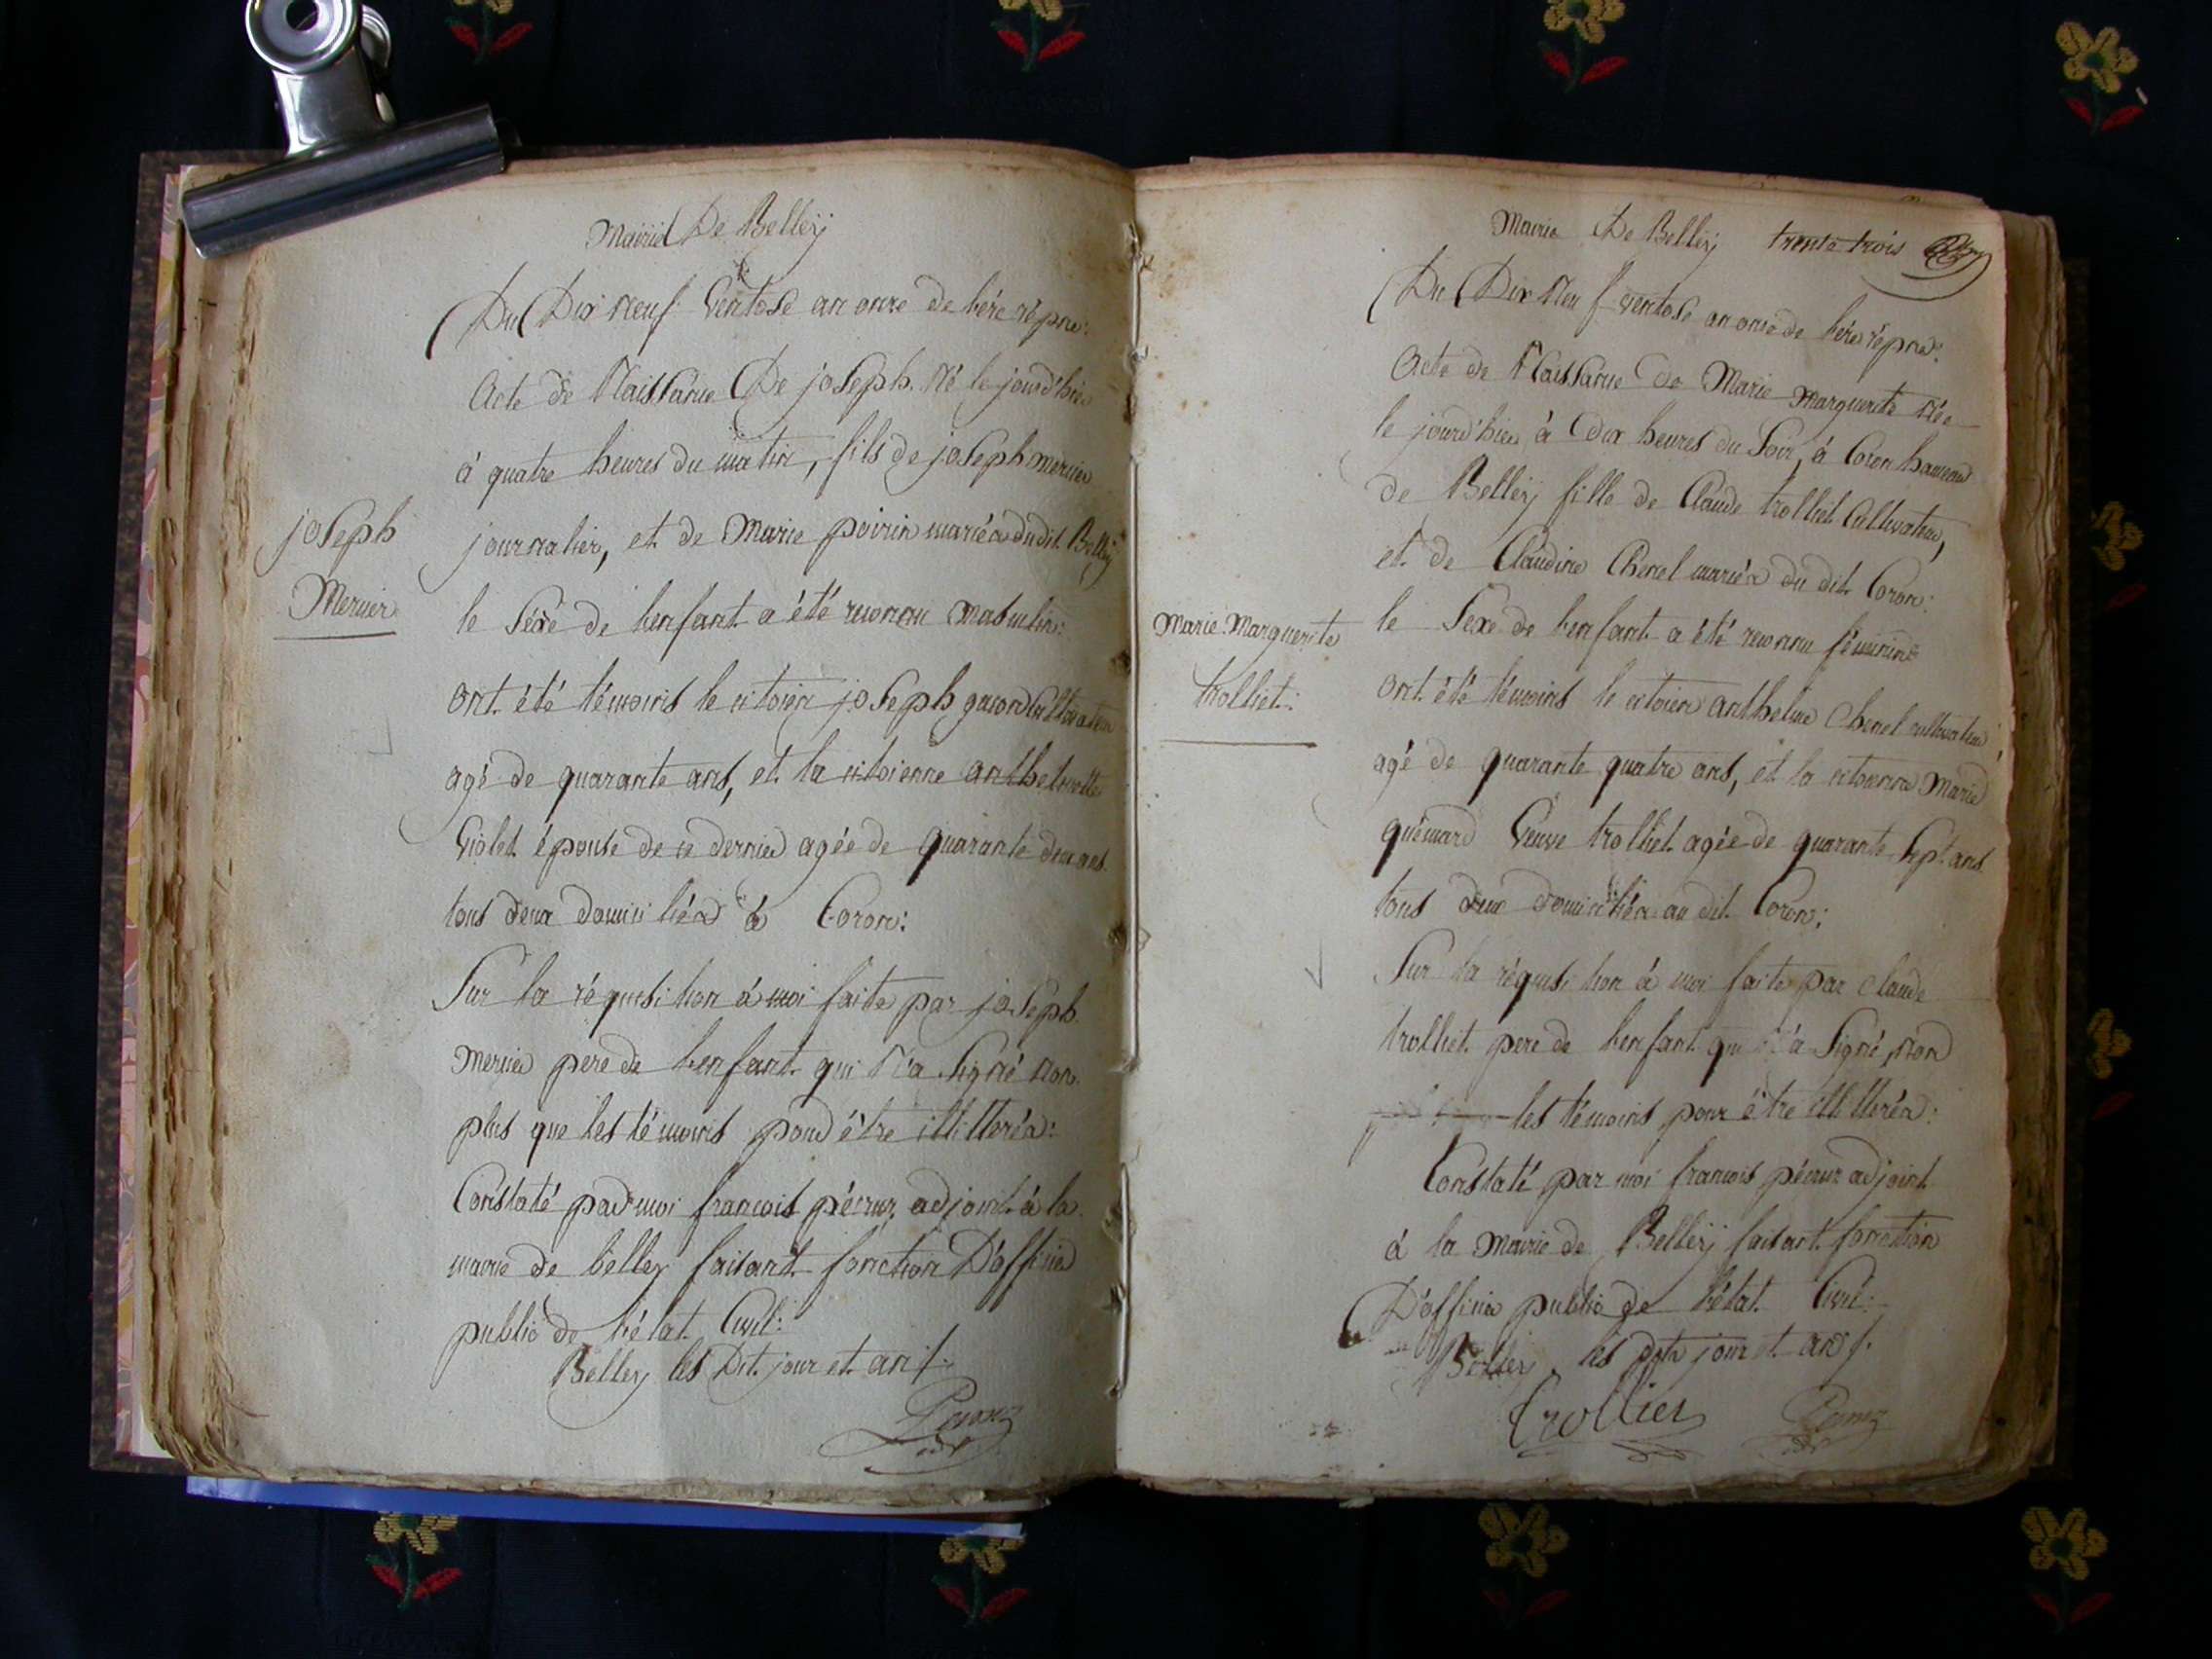 Mairie De Belleÿ
Du Dix neuf Ventose an onze de l'ére répne:
Acte de Naissance De joseph. Né le jourd'hier
à quatre heures du matin, fils de joseph mercier
journalier, et de Marie poirin mariés dudit Belleÿ
joseph
Mercier
le Sexe de l'enfant a été reconnu masculin:
ont été témoins le citoien joseph cultivateur
agé de quarante ans, et la citoienne anthelmette
Violet épouse de ce dernier agée de quarante deux ans
tous deux domiciliés à Coron:
Sur la réquisition à moi faite par joseph
mercier pere de l'enfant qui N'a signé non
plus que les témoins pour être illittérés:
Constaté par moi francois pécruz adjoint à la
mairie de belley faisant fonction D'officier
public de l'état Civil:
Belley les Dit. jour et an
Mairie De Belleÿ trente trois
Du Dix Neuf ventose an onze de l'ére répne:
Acte de Naissance de Marie Marguerite Née
le jourd'hier à Dix heures du Soir, à Coron hameau
de Belleÿ fille de Claude trolliet Cultivateur,
et de Claudine Chenel mariés du dit Coron:
Marie Marguerite
trolliet:
le Sexe de l'enfant a été reconnu féminin
ont été témoins le citoien anthelme Chenel cultivateur
agé de quarante quatre ans, et la citoienne Marie
Veuve trolliet agée de quarante Sept ans
tous deux domiciliés au dit Coron:
Sur la réquisition à moi faite par Claude
trolliet pere de l'enfant qui a Signé, non
les témoins pour être illittérés:
Constaté par moi francois pécruz adjoint
à la mairie de Belleÿ faisant fonction
D'officier public de l'état Civil:
Belley les dits jour et an
Trolliet